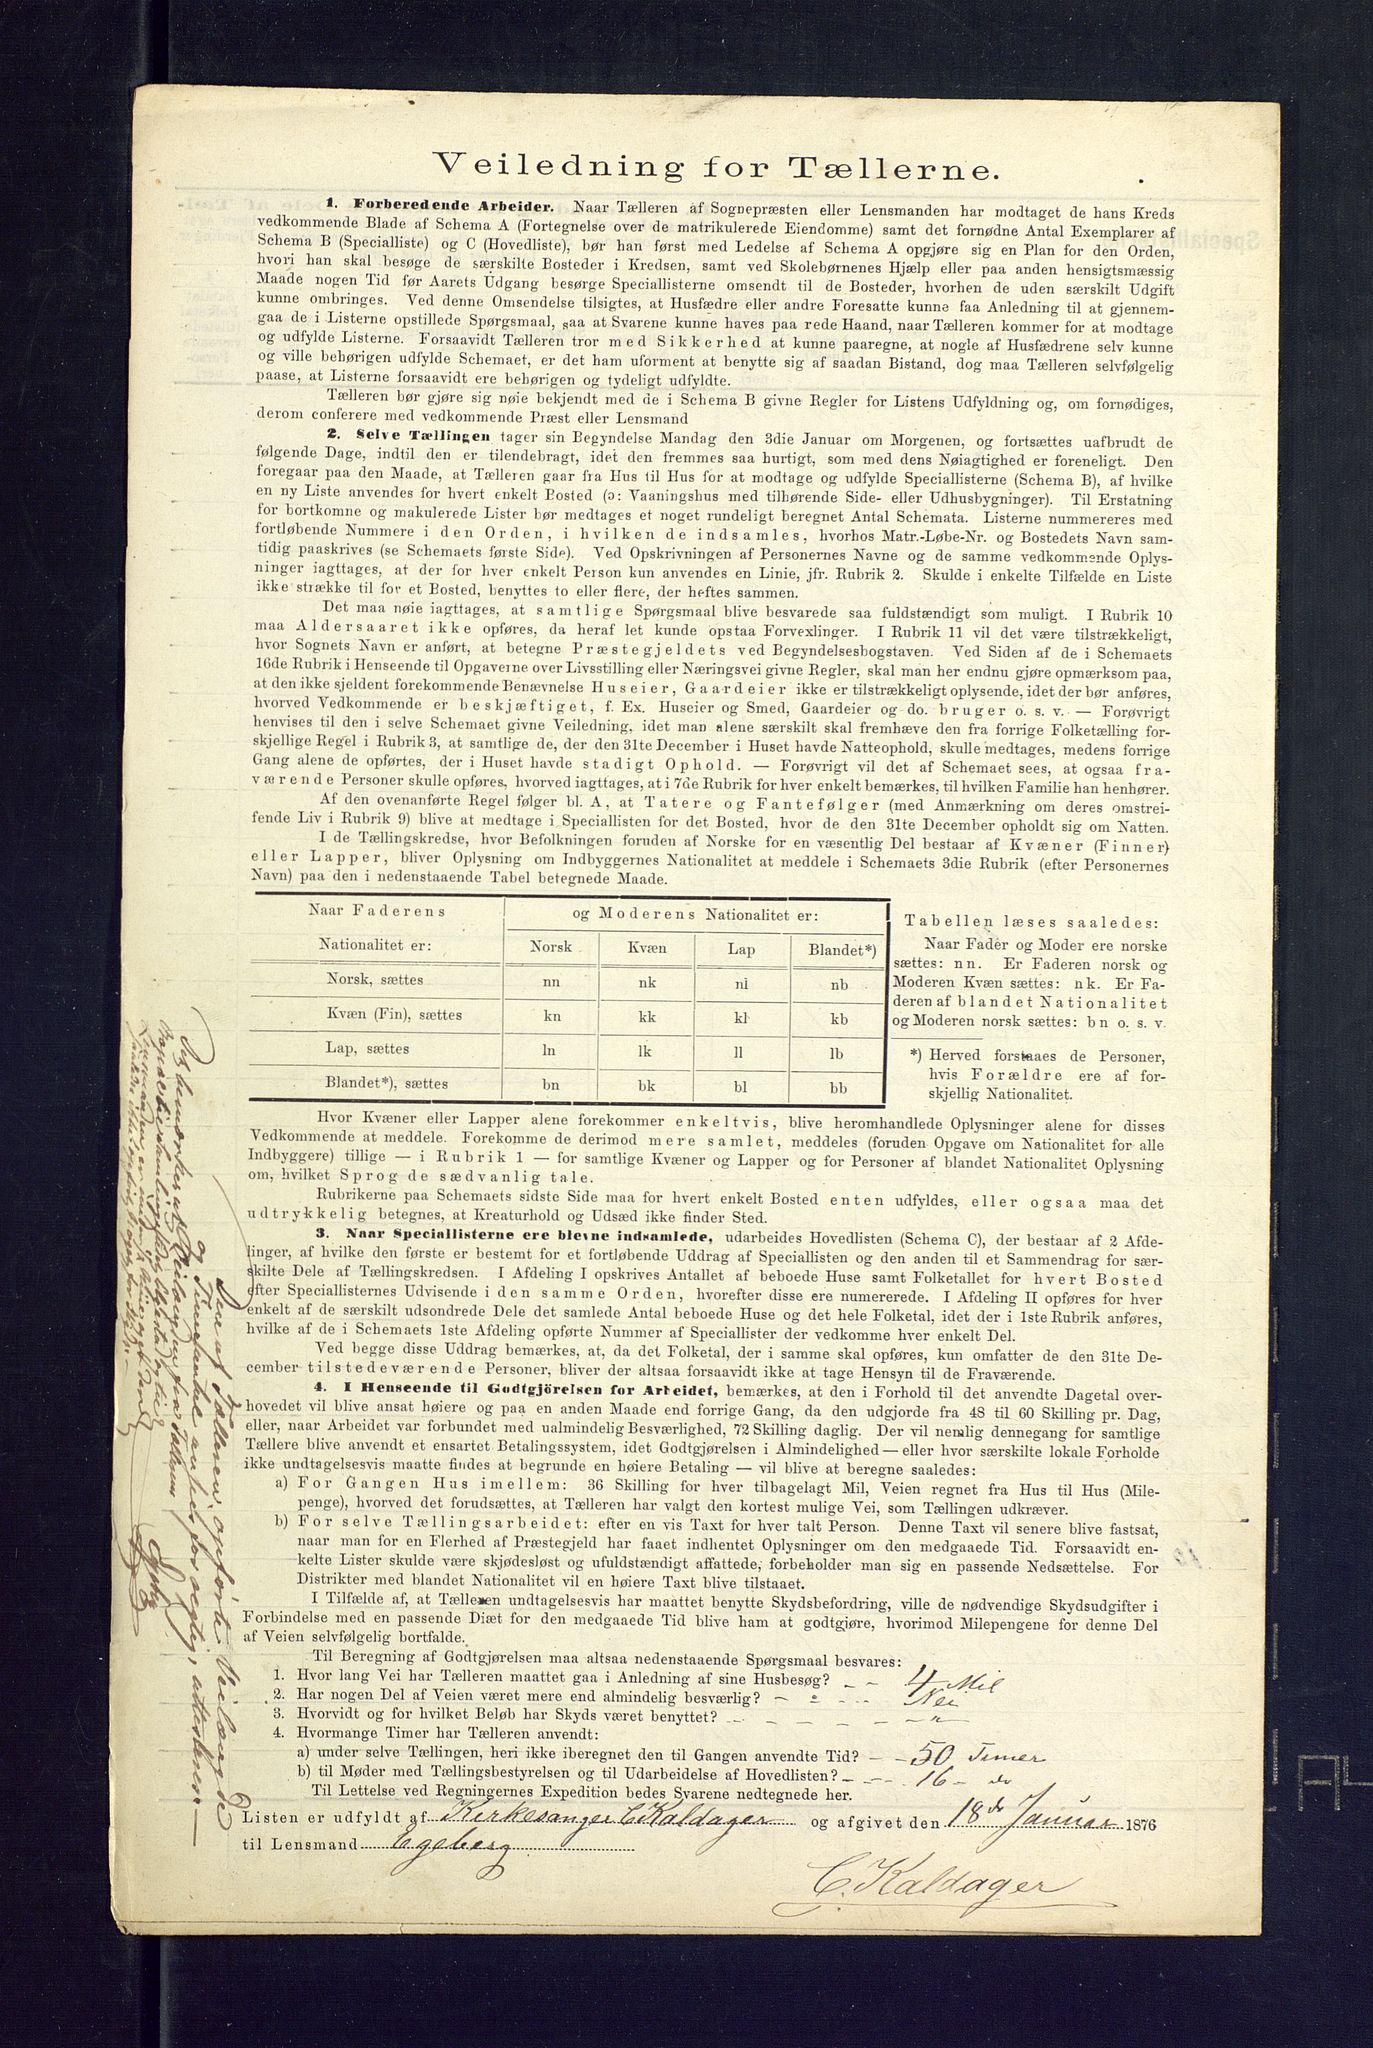 Veiledning for Tællerne.
1. Forberedende Arbeider. Naar Tælleren af Sognepræsten eller Lensmanden har modtaget de hans Kreds
vedkommende Blade af Schema A (Fortegnelse over de matrikulerede Eiendomme) samt det fornødne Antal Exemplarer af
Schema B (Specialliste) og C (Hovedliste), bør han først med Ledelse af Schema A opgjøre sig en Plan for den Orden,
hvori han skal besøge de særskilte Bosteder i Kredsen, samt ved Skolebørnenes Hjælp eller paa anden hensigtsmæssig
Maade nogen Tid før Aarets Udgang besørge Speciallisterne omsendt til de Bosteder, hvorhen de uden særskilt Udgift
kunne ombringes. Ved denne Omsendelse tilsigtes, at Husfædre eller andre Foresatte kunne faa Anledning til at gjennem-
gaa de i Listerne opstillede Spørgsmaal, saa at Svarene kunne haves paa rede Haand, naar Tælleren kommer for at modtage
og udfylde Listerne. Forsaavidt Tælleren tror med Sikkerhed at kunne paaregne, at nogle af Husfædrene selv kunne
og ville behørigen udfylde Schemaet, er det ham uforment at benytte sig af saadan Bistand, dog maa Tælleren selvfølgelig
paase, at Listerne forsaavidt ere behørigen og tydeligt udfyldte.
Tælleren bør gjøre sig nøie bekjendt med de i Schema B givne Regler for Listens Udfyldning og, om fornødiges,
derom conferere med vedkommende Præst eller Lensmand
2. Selve Tællingen tager sin Begyndelse Mandag den 3die Januar om Morgenen, og fortsættes uafbrudt de
følgende Dage, indtil den er tilendebragt, idet den fremmes saa hurtigt, som med dens Nøiagtighed er foreneligt. Den
foregaar paa den Maade, at Tælleren gaar fra Hus til Hus for at modtage og udfylde Speciallisterne (Schema B), af hvilke
en ny Liste anvendes for hvert enkelt Bosted (ɔ: Vaaningshus med tilhørende Side- eller Udhusbygninger). Til Erstatning
for bortkomne og makulerede Lister bør medtages et noget rundeligt beregnet Antal Schemata. Listerne nummereres med
fortløbende Nummere i den Orden, i hvilken de indsamles, hvorhos Matr.-Løbe-Nr. og Bostedets Navn sam-
tidig paaskrives (se Schemaets første Side). Ved Opskrivningen af Personernes Navne og de samme vedkommende Oplys-
ninger iagttages, at der for hver enkelt Person kun anvendes en Linie, jfr. Rubrik 2. Skulde i enkelte Tilfælde en Liste
ikke strække til for et Bosted, benyttes to eller flere, der heftes sammen.
Det maa nøie iagttages, at samtlige Spørgsmaal blive besvarede saa fuldstændigt som muligt. I Rubrik 10
maa Aldersaaret ikke opføres, da heraf let kunde opstaa Forvexlinger. I Rubrik 11 vil det være tilstrækkeligt,
hvor Sognets Navn er anført, at betegne Præstegjeldets ved Begyndelsesbogstaven. Ved Siden af de i Schemaets
16de Rubrik i Henseende til Opgaverne over Livsstilling eller Næringsvei givne Regler, skal man her endnu gjøre opmærksom paa,
at den ikke sjeldent forekommende Benævnelse Huseier, Gaardeier ikke er tilstrækkeligt oplysende, idet der bør anføres,
hvorved Vedkommende er beskjæftiget, f. Ex. Huseier og Smed, Gaardeier og do. bruger o. s. v. — Forøvrigt
henvises til den i selve Schemaet givne Veiledning, idet man alene særskilt skal fremhæve den fra forrige Folketælling for-
skjellige Regel i Rubrik 3, at samtlige de, der den 31te December i Huset havde Natteophold, skulle medtages, medens forrige
Gang alene de opførtes, der i Huset havde stadigt Ophold. — Forøvrigt vil det af Schemaet sees, at ogsaa fra-
værende Personer skulle opføres, hvorved iagttages, at i 7de Rubrik for hver enkelt bemærkes, til hvilken Familie han henhører.
Af den ovenanførte Regel følger bl. A, at Tatere og Fantefølger (med Anmærkning om deres omstrei-
fende Liv i Rubrik 9) blive at medtage i Speciallisten for det Bosted, hvor de den 31te December opholdt sig om Natten.
I de Tællingskredse, hvor Befolkningen foruden af Norske for en væsentlig Del bestaar af Kvæner (Finner)
eller Lapper, bliver Oplysning om Indbyggernes Nationalitet at meddele i Schemaets 3die Rubrik (efter Personernes
Navn) paa den i nedenstaaende Tabel betegnede Maade.
Naar Faderens
Nationalitet er:
og Moderens Nationalitet er:
Norsk Kvæn Lap Blandet*)
Norsk, sættes nn nk nl nb
Kvæn (Fin), sættes kn kk kl kb
Lap, sættes ln lk ll lb
Blandet*), sættes bn bk bl bb
Tabellen læses saaledes:
Naar Fader og Moder ere norske
sættes: nn. Er Faderen norsk og
Moderen Kvæn sættes: nk. Er Fa-
deren af blandet Nationalitet
og Moderen norsk sættes: bn o. s. v.
*) Herved forstaaes de Personer,
hvis Forældre ere af for-
skjellig Nationalitet.
Hvor Kvæner eller Lapper alene forekommer enkeltvis, blive heromhandlede Oplysninger alene for disses
Vedkommende at meddele. Forekomme de derimod mere samlet, meddeles (foruden Opgave om Nationalitet for alle
Indbyggere) tillige — i Rubrik 1 — for samtlige Kvæner og Lapper og for Personer af blandet Nationalitet Oplysning
om, hvilket Sprog de sædvanlig tale.
Rubrikerne paa Schemaets sidste Side maa for hvert enkelt Bosted enten udfyldes, eller ogsaa maa det
udtrykkelig betegnes, at Kreaturhold og Udsæd ikke finder Sted.
3. Naar Speciallisterne ere blevne indsamlede, udarbeides Hovedlisten (Schema C), der bestaar af 2 Afde-
linger, af hvilke den første er bestemt for et fortløbende Uddrag af Speciallisten og den anden til et Sammendrag for sær-
skilte Dele af Tællingskredsen. I Afdeling I opskrives Antallet af beboede Huse samt Folketallet for hvert Bosted
efter Speciallisternes Udvisende i den samme Orden, hvorefter disse ere numererede. I Afdeling II opføres for hver
enkelt af de særskilt udsondrede Dele det samlede Antal beboede Huse og det hele Folketal, idet der i 1ste Rubrik anføres,
hvilke af de i Schemaets 1ste Afdeling opførte Nummer af Speciallister der vedkomme hver enkelt Del.
Ved begge disse Uddrag bemærkes, at, da det Folketal, der i samme skal opføres, kun omfatter de den 31te De-
cember tilstedeværende Personer, bliver der altsaa forsaavidt ikke at tage Hensyn til de Fraværende.
4. I Henseende til Godtgjörelsen for Arbeidet, bemærkes, at den i Forhold til det anvendte Dagetal over-
hovedet vil blive ansat høiere og paa en anden Maade end forrige Gang, da den udgjorde fra 48 til 60 Skilling pr. Dag,
eller, naar Arbeidet var forbundet med ualmindelig Besværlighed, 72 Skilling daglig. Der vil nemlig dennegang for samtlige
Tællere blive anvendt et ensartet Betalingssystem, idet Godtgjørelsen i Almindelighed — eller hvor særskilte lokale Forholde
ikke undtagelsesvis maatte findes at begrunde en høiere Betaling — vil blive at beregne saaledes:
a) For Gangen Hus imellem: 36 Skilling for hver tilbagelagt Mil, Veien regnet fra Hus til Hus (Mile-
penge), hvorved det forudsættes, at Tælleren har valgt den kortest mulige Vei, som Tællingen udkræver.
b) For selve Tællingsarbeidet: efter en vis Taxt for hver talt Person. Denne Taxt vil senere blive fastsat,
naar man for en Flerhed af Præstegjeld har faaet indhentet Oplysninger om den medgaaede Tid. Forsaavidt en-
kelte Lister skulde være skjødesløst og ufuldstændigt affattede, forbeholder man sig en passende Nedsættelse. For
Distrikter med blandet Nationalitet vil en høiere Taxt blive tilstaaet.
I Tilfælde af, at Tælleren undtagelsesvis har maattet benytte Skydsbefordring, ville de nødvendige Skydsudgifter i
Forbindelse med en passende Diæt for den medgaaede Tid blive ham at godtgjøre, hvorimod Milepengene for denne Del
af Veien selvfølgelig bortfalde.
Til Beregning af Godtgjørelsen maa altsaa nedenstaaende Spørgsmaal besvares:
1. Hvor lang Vei har Tælleren maattet gaa i Anledning af sine Husbesøg? 4 Mil
2. Har nogen Del af Veien været mere end almindelig besværlig? Nei
3. Hvorvidt og for hvilket Beløb har Skyds været benyttet? "
4. Hvormange Timer har Tælleren anvendt:
a) under selve Tællingen, heri ikke iberegnet den til Gangen anvendte Tid? 50 Timer
b) til Møder med Tællingsbestyrelsen og til Udarbeidelse af Hovedlisten? 16 do
Til Lettelse ved Regningernes Expedition bedes Svarene nedtegnede her.
Listen er udfyldt af Kirkesanger C Kaldager og afgivet den 18de Januar 1876
til Lensmand Egeberg
C. Kaldager
Den af Tælleren opførte Veilængde
og Timeantal ansees for rigtig, attesteres